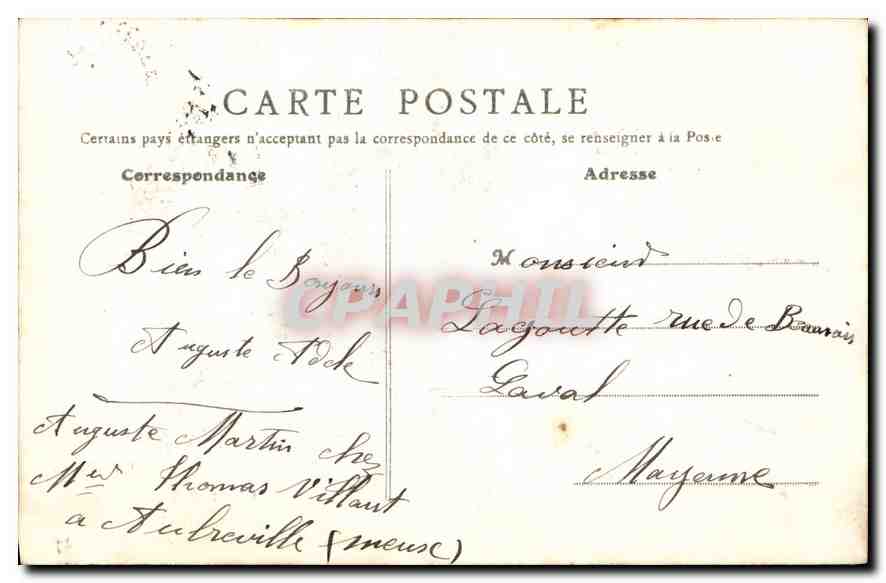 CARTE POSTALE
Certains pays étrangers n'acceptant pas la correspondance de ce côté, se renseigner à la Poste
Correspondance
Adresse
Bien le Bonjours
Auguste Adele
Auguste Martin chez
Mer Thomas Villant
a Aubreville (meuse)
Monsieur
Lagoutte rue de Beauvais
Laval
Mayenne
CPAPHIL